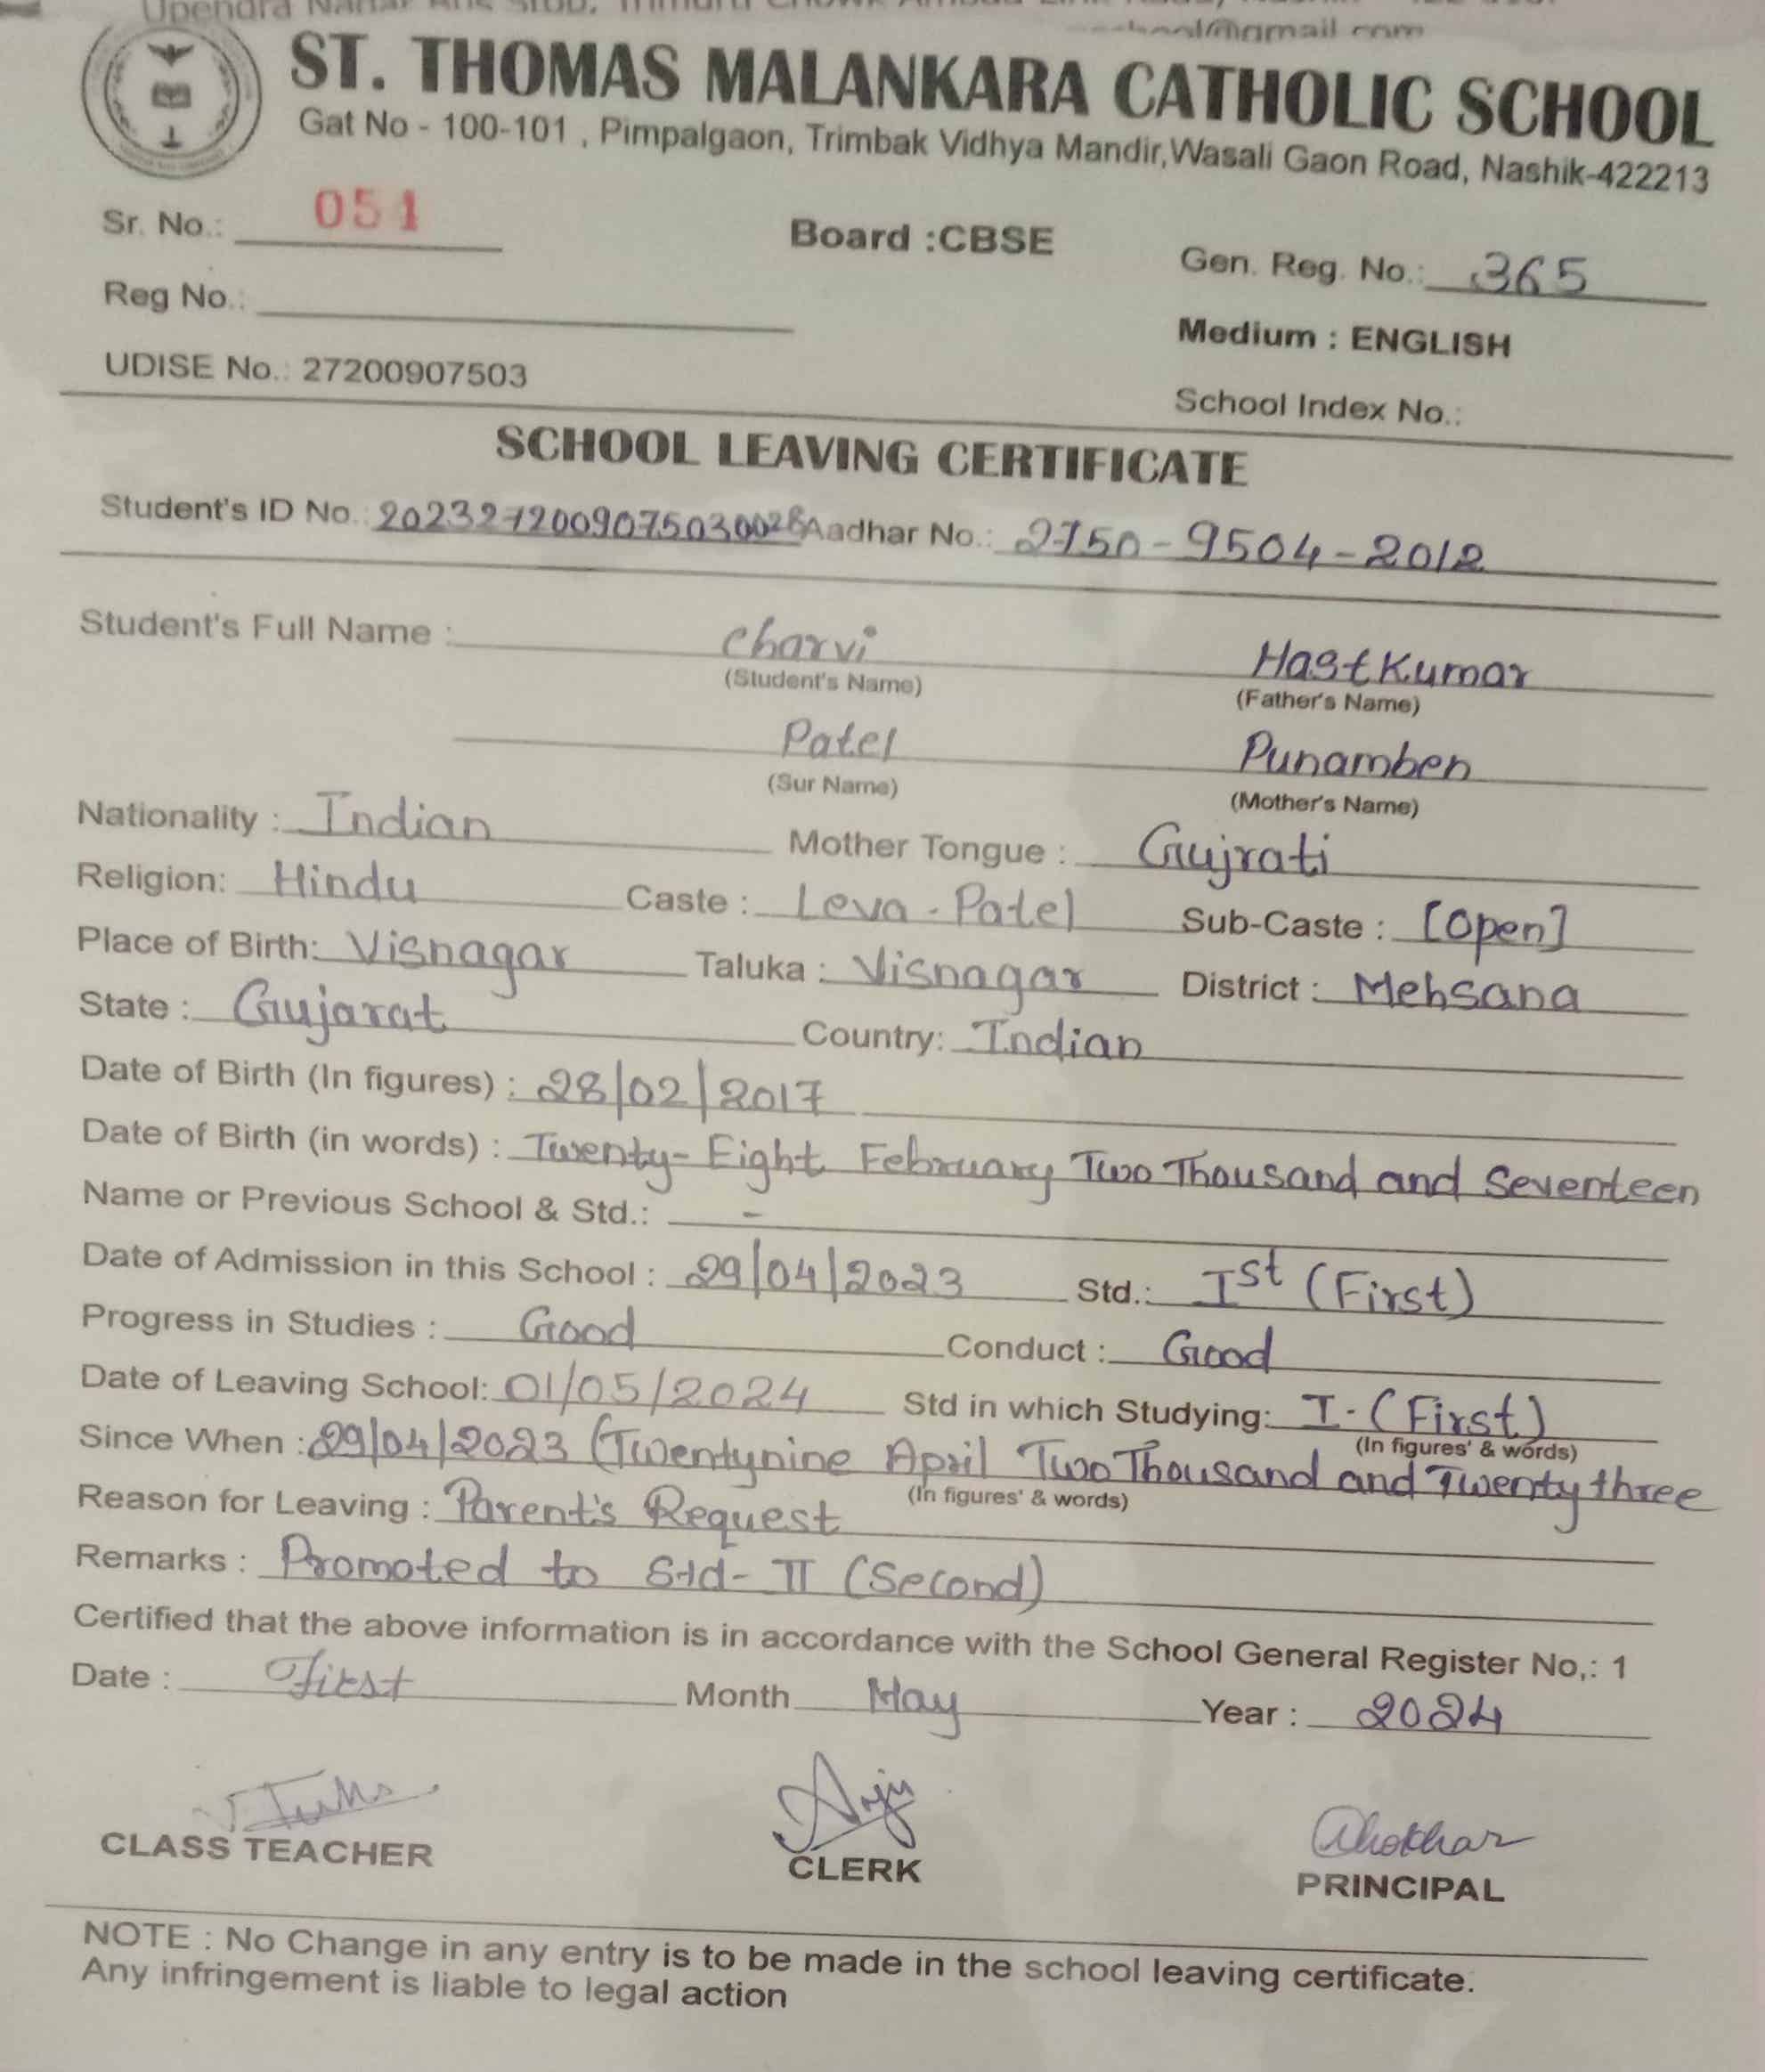 ST. THOMAS MALANKARA CATHOLIC SCHOOL
Gat No - 100-101 , Pimpalgaon, Trimbak Vidhya Mandir,Wasali Gaon Road, Nashik-422213
Sr. No.: 051
Board :CBSE
Gen. Reg. No.: 365
Reg No.:
Medium : ENGLISH
UDISE No.: 27200907503
School Index No.:
SCHOOL LEAVING CERTIFICATE
Student's ID No.: 2023272009075030028 Aadhar No.: 2750-9504-2012
Student's Full Name : Charvi HastKumar
(Student's Name) (Father's Name)
Patel Punamben
(Sur Name) (Mother's Name)
Nationality : Indian Mother Tongue : Gujrati
Religion: Hindu Caste : Leva - Patel Sub-Caste : [Open]
Place of Birth: Visnagar Taluka : Visnagar District : Mehsana
State : Gujarat Country: Indian
Date of Birth (In figures) : 28/02/2017
Date of Birth (in words) : Twenty-Eight February Two Thousand and Seventeen
Name or Previous School & Std.: -
Date of Admission in this School : 29/04/2023 Std.: Ist (First)
Progress in Studies : Good Conduct : Good
Date of Leaving School: 01/05/2024 Std in which Studying: I-(First)
(In figures' & words)
Since When : 29/04/2023 (Twentynine April Two Thousand and Twenty three
(In figures' & words)
Reason for Leaving : Parent's Request
Remarks : Promoted to Std- II (Second)
Certified that the above information is in accordance with the School General Register No,: 1
Date : First Month May Year : 2024
CLASS TEACHER
CLERK
PRINCIPAL
NOTE : No Change in any entry is to be made in the school leaving certificate.
Any infringement is liable to legal action